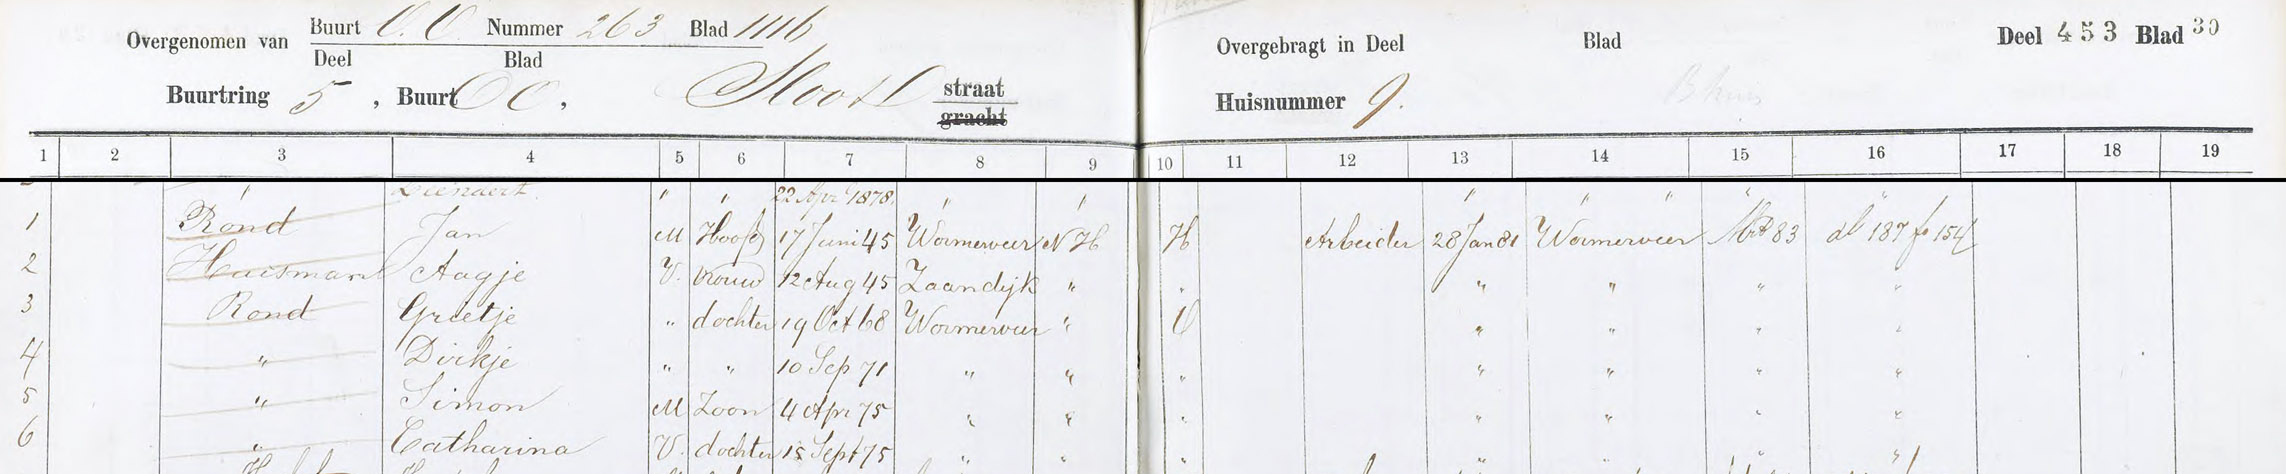 Overgenomen van Buurt O.O. Nummer 263 Blad 1116
Deel Blad
Buurtring 5, Buurt OO, Sloot straat
gracht
Overgebragt in Deel Blad Deel 453 Blad 30
Huisnummer 9.
1 2 3 4 5 6 7 8 9 10 11 12 13 14 15 16 17 18 19
" " " 22 Apr 1878 " " " " " " "
1 Rond Jan M Hoofd 17 Juni 45 Wormerveer N H H Arbeider 28 Jan 81 Wormerveer Mrt 83 dl 187 fo 154
2 Huismans Aagje V. vrouw 12 Aug 45 Zaandijk " " " " " "
3 Rond Grietje " dochter 19 Oct 68 Wormerveer " O " " " "
4 " Dirkje " " 10 Sep 71 " " " " " " "
5 " Simon M Zoon 4 Apr 75 " " " " " " "
6 " Catharina V. dochter 15 Sept 75 " " " " " " "